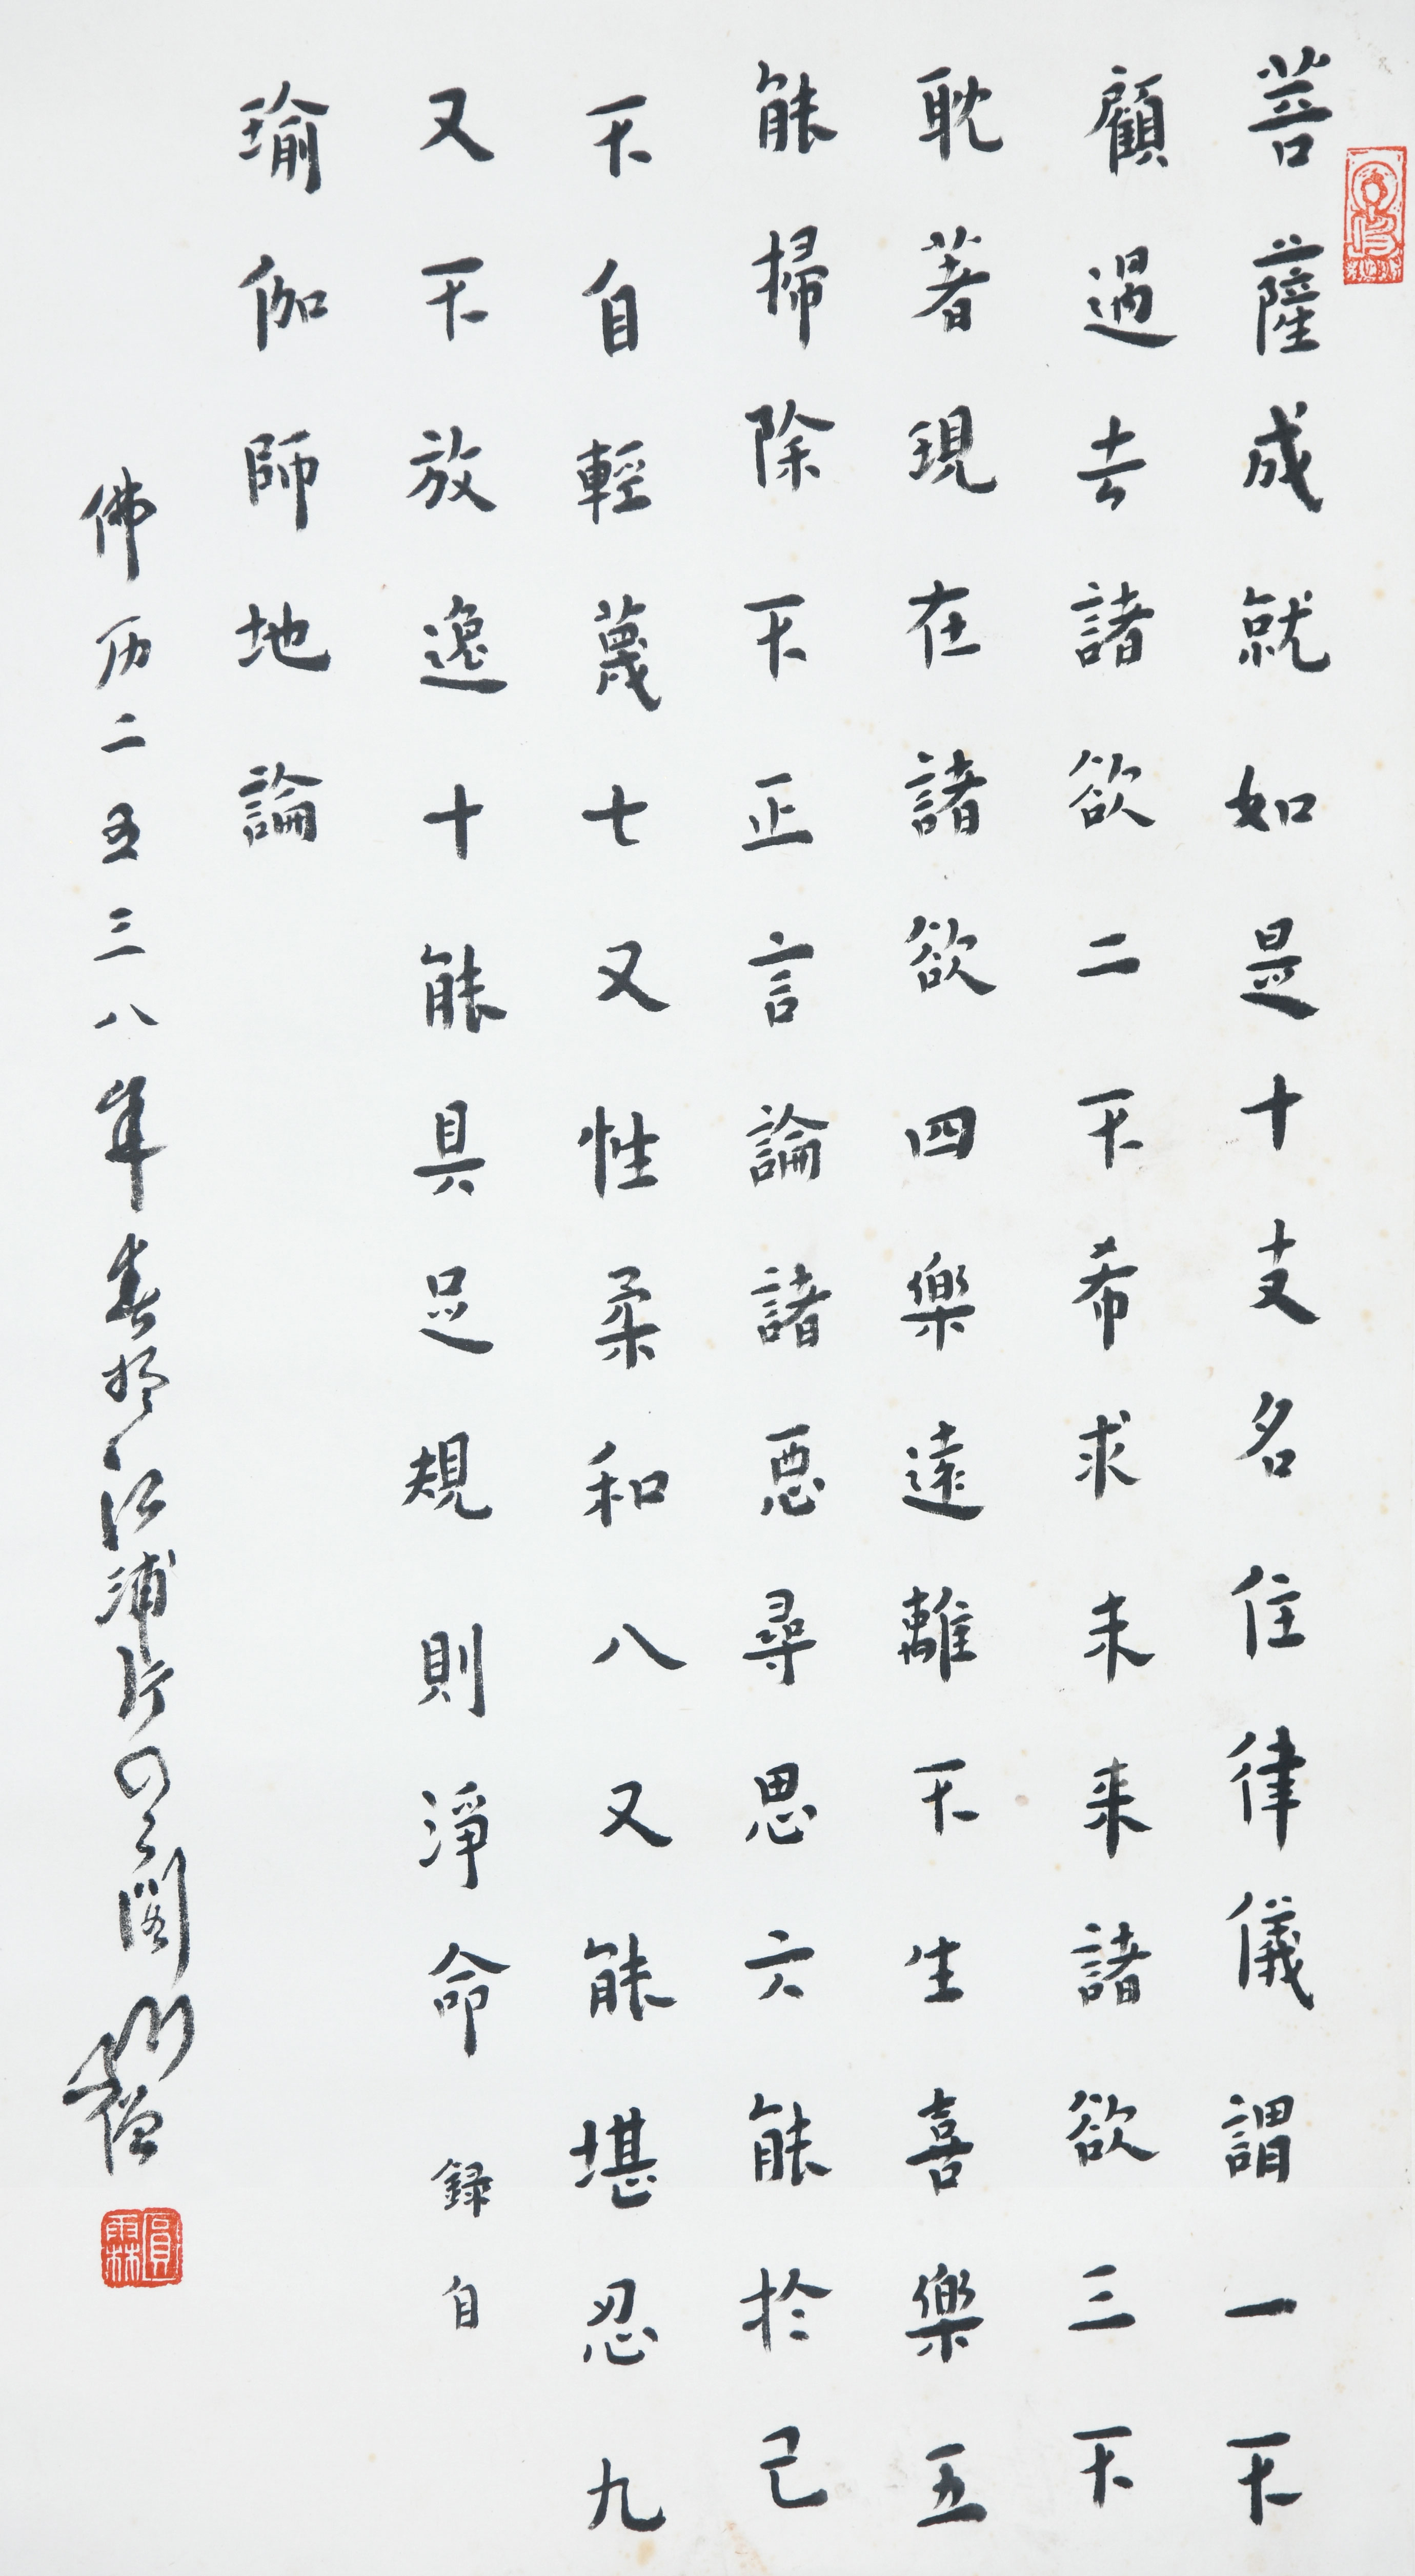 菩薩成就如是十支名住律儀謂一不
顧過去諸欲二不希求未來諸欲三不
耽著現在諸欲四樂遠離不生喜樂五
能掃除不正言論諸惡尋思六能於己
不自輕蔑七又性柔和八又能堪忍九
又不放逸十能具足規則淨命 錄自
瑜伽師地論
佛历二五三八年春於江浦片四云阁 僧
圓霖